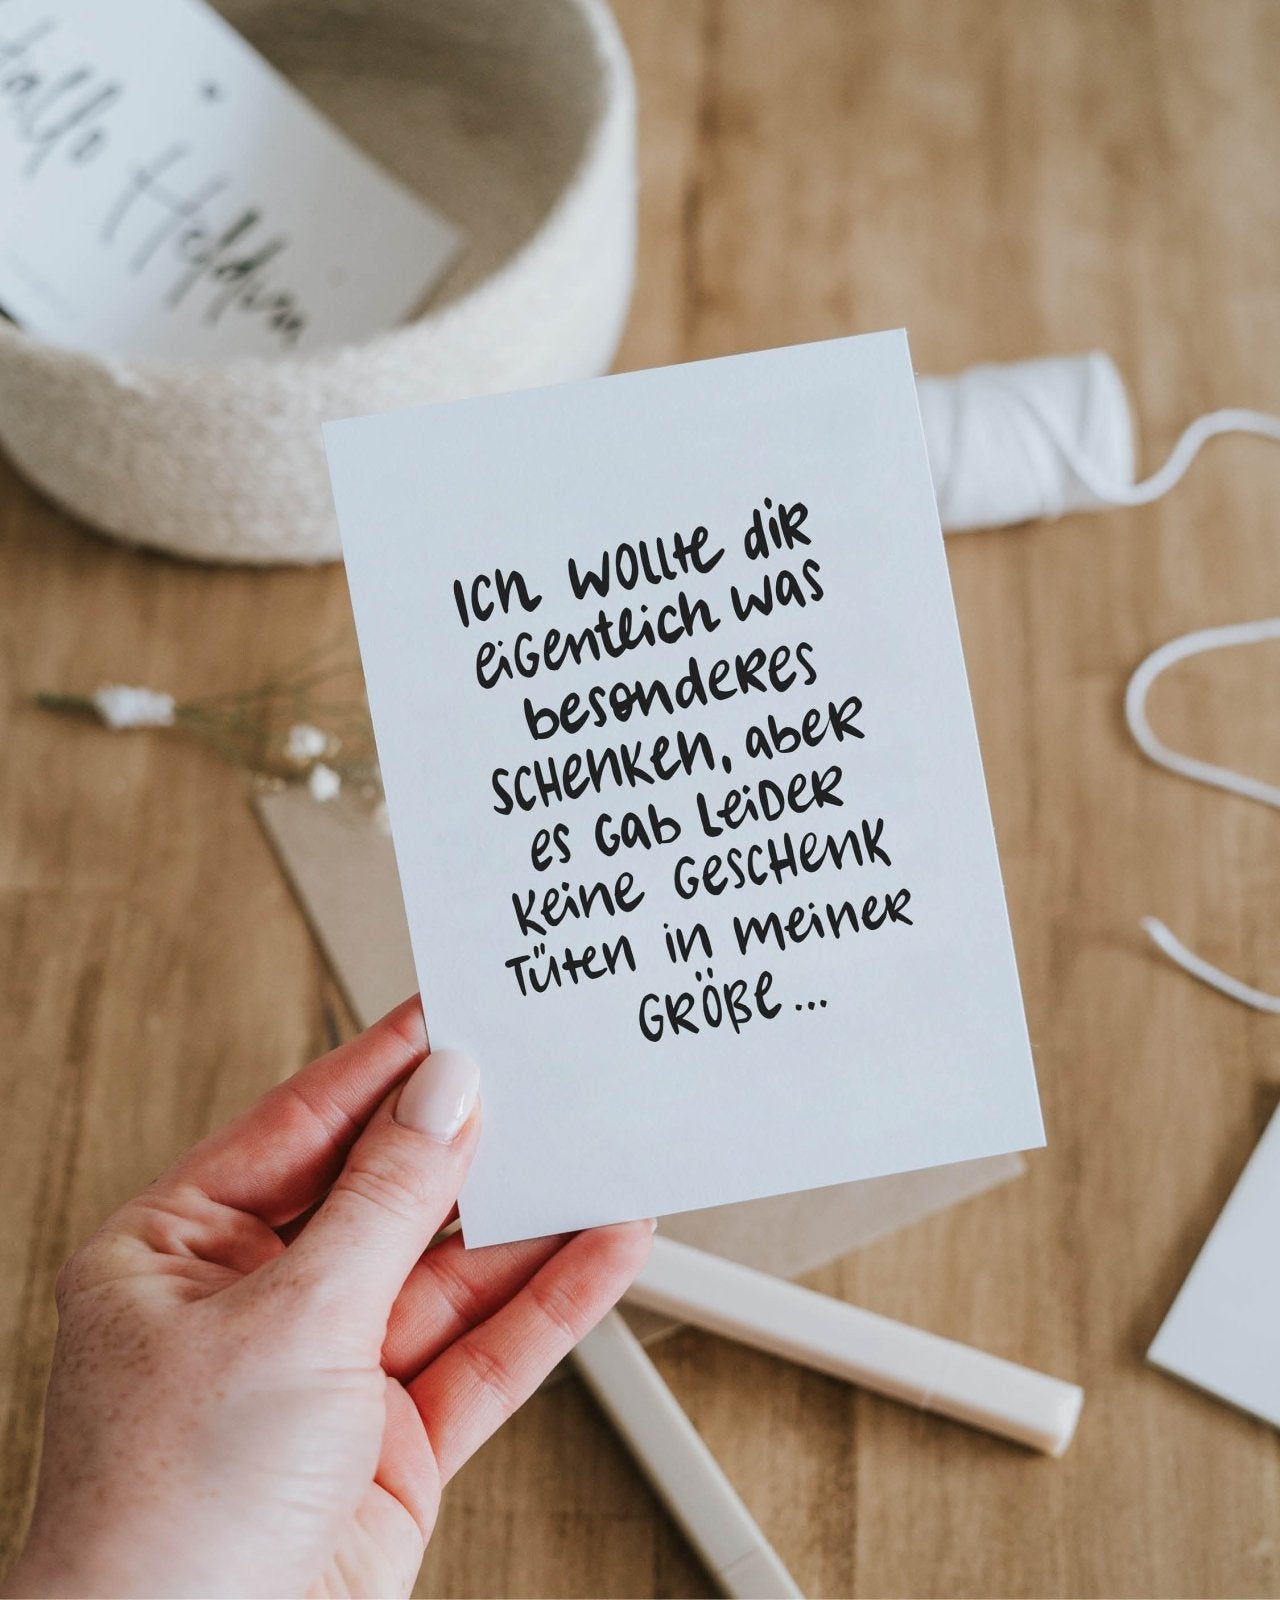 Hallo Heldin
Ich wollte dir
eigentlich was
besonderes
schenken, aber
es gab leider
keine Geschenk
tüten in meiner
Größe...